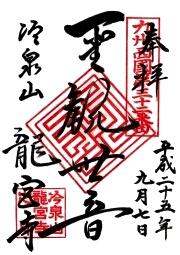 奉拝
平成二十五年
九月七日
九州西國
聖観世音
冷泉山
龍宮寺
冷泉山
龍宮寺